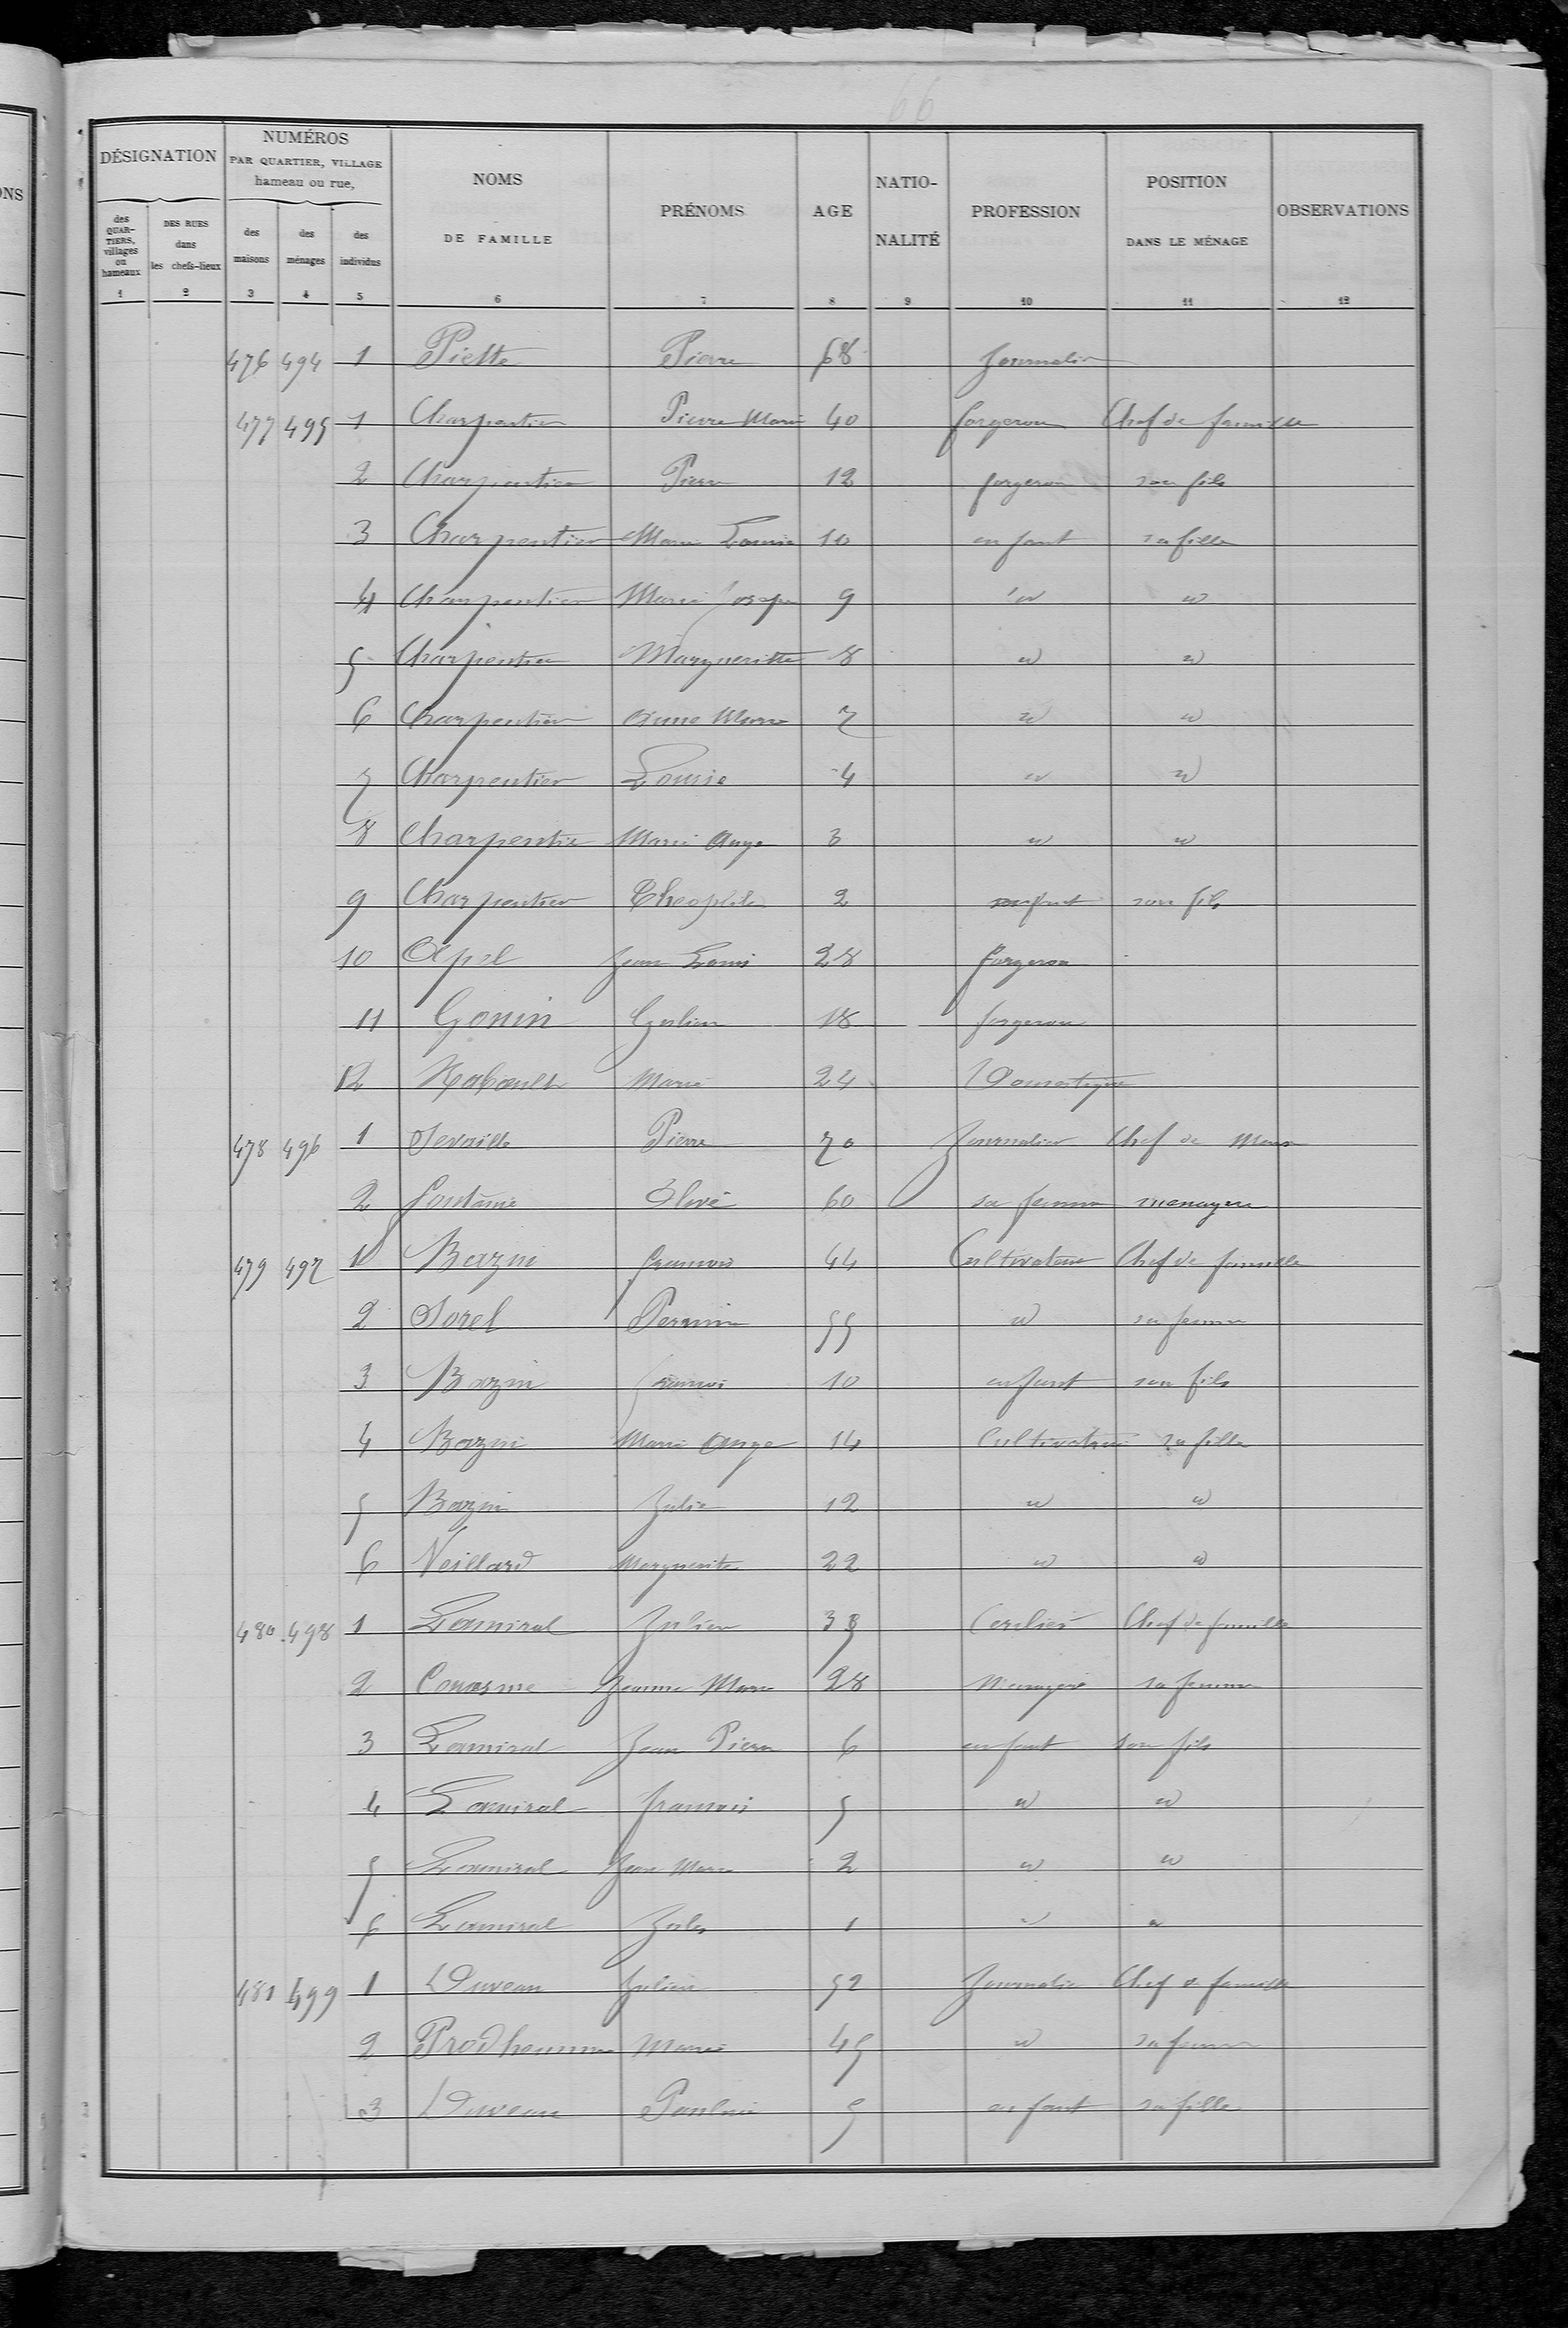 66
ONS
DÉSIGNATION
NUMÉROS
PAR QUARTIER, VILLAGE
hameau ou rue,
NOMS
DE FAMILLE
PRÉNOMS
AGE
NATIO-
NALITÉ
PROFESSION
POSITION
DANS LE MÉNAGE
OBSERVATIONS
des
QUAR-
TIERS,
villages
ou
hameaux
DES RUES
dans
les chefs-lieux
des
maisons
des
ménages
des
individus
1 2 3 4 5 6 7 8 9 10 11 12
476 494 1 Piette Pierre 68 Journalier
477 495 1 Charpentier Pierre Marie 40 forgeron Chef de famille
2 Charpentier Pierre 12 forgeron son fils
3 Charpentier Marie Louise 10 enfant sa fille
4 Charpentier Marie Joseph 9 w w
5 Charpentier Margueritte 8 w w
6 Charpentier Anne Marie 7 w w
7 Charpentier Louise 4 w w
8 Charpentier Marie Ange 3 w w
9 Charpentier Theophile 2 enfant son fils
10 Jean Louis 28 forgeron
11 Gonin Julien 18 forgeron
12 Marie 24 Domestique
478 496 1 Pierre 70 Journalier Chef de
2 Fontaine 60 sa femme menagere
479 497 1 Bazin francois 44 Cultivateur Chef de famille
2 Sorel Perrine 55 w sa femme
3 Bazin francois 10 enfant son fils
4 Bazin Marie Ange 14 Cultivatrice sa fille
5 Bazin Julie 12 w w
6 Veillard Marguerite 22 w w
480 498 1 Lamiral Julien 35 Cerclier Chef de famille
2 Jeanne Marie 28 Menagere sa femme
3 Lamiral Jean Pierre 6 enfant son fils
4 Lamiral francois 5 w w
5 Lamiral Jean Marie 2 w w
6 Lamiral Jules 1 w w
481 499 1 Duveau Julien 52 Journalier Chef de famille
2 Prodhomme Marie 45 w sa femme
3 Duveau Pauline 5 enfant sa fille